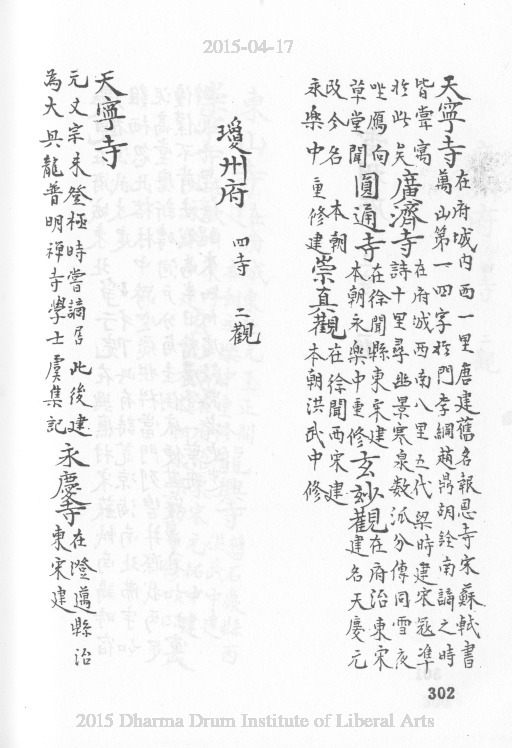 2015-04-17
天寧寺 在府城内西一里唐建舊名報恩寺宋蘇軾書
萬山第一四字於門李綱趙鼎胡銓南謫之時
皆甞寓
於此矣 廣濟寺 在府城西南八里五代梁時建宋寇準
詩十里尋幽景寒泉數派分傳同雪夜
坐鴈向
草堂聞 圓通寺 在徐聞縣東宋建
本朝永樂中重修 玄妙觀 在府治東宋
建名天慶元
改今名 本朝
永樂中重修建 崇真觀 在徐聞西宋建
本朝洪武中修
瓊州府 四寺 二觀
天寧寺
元文宗未登極時嘗謫居此後建
為大興龍普明禪寺學士虞集記 永慶寺 在澄邁縣治
東宋建
302
2015 Dharma Drum Institute of Liberal Arts